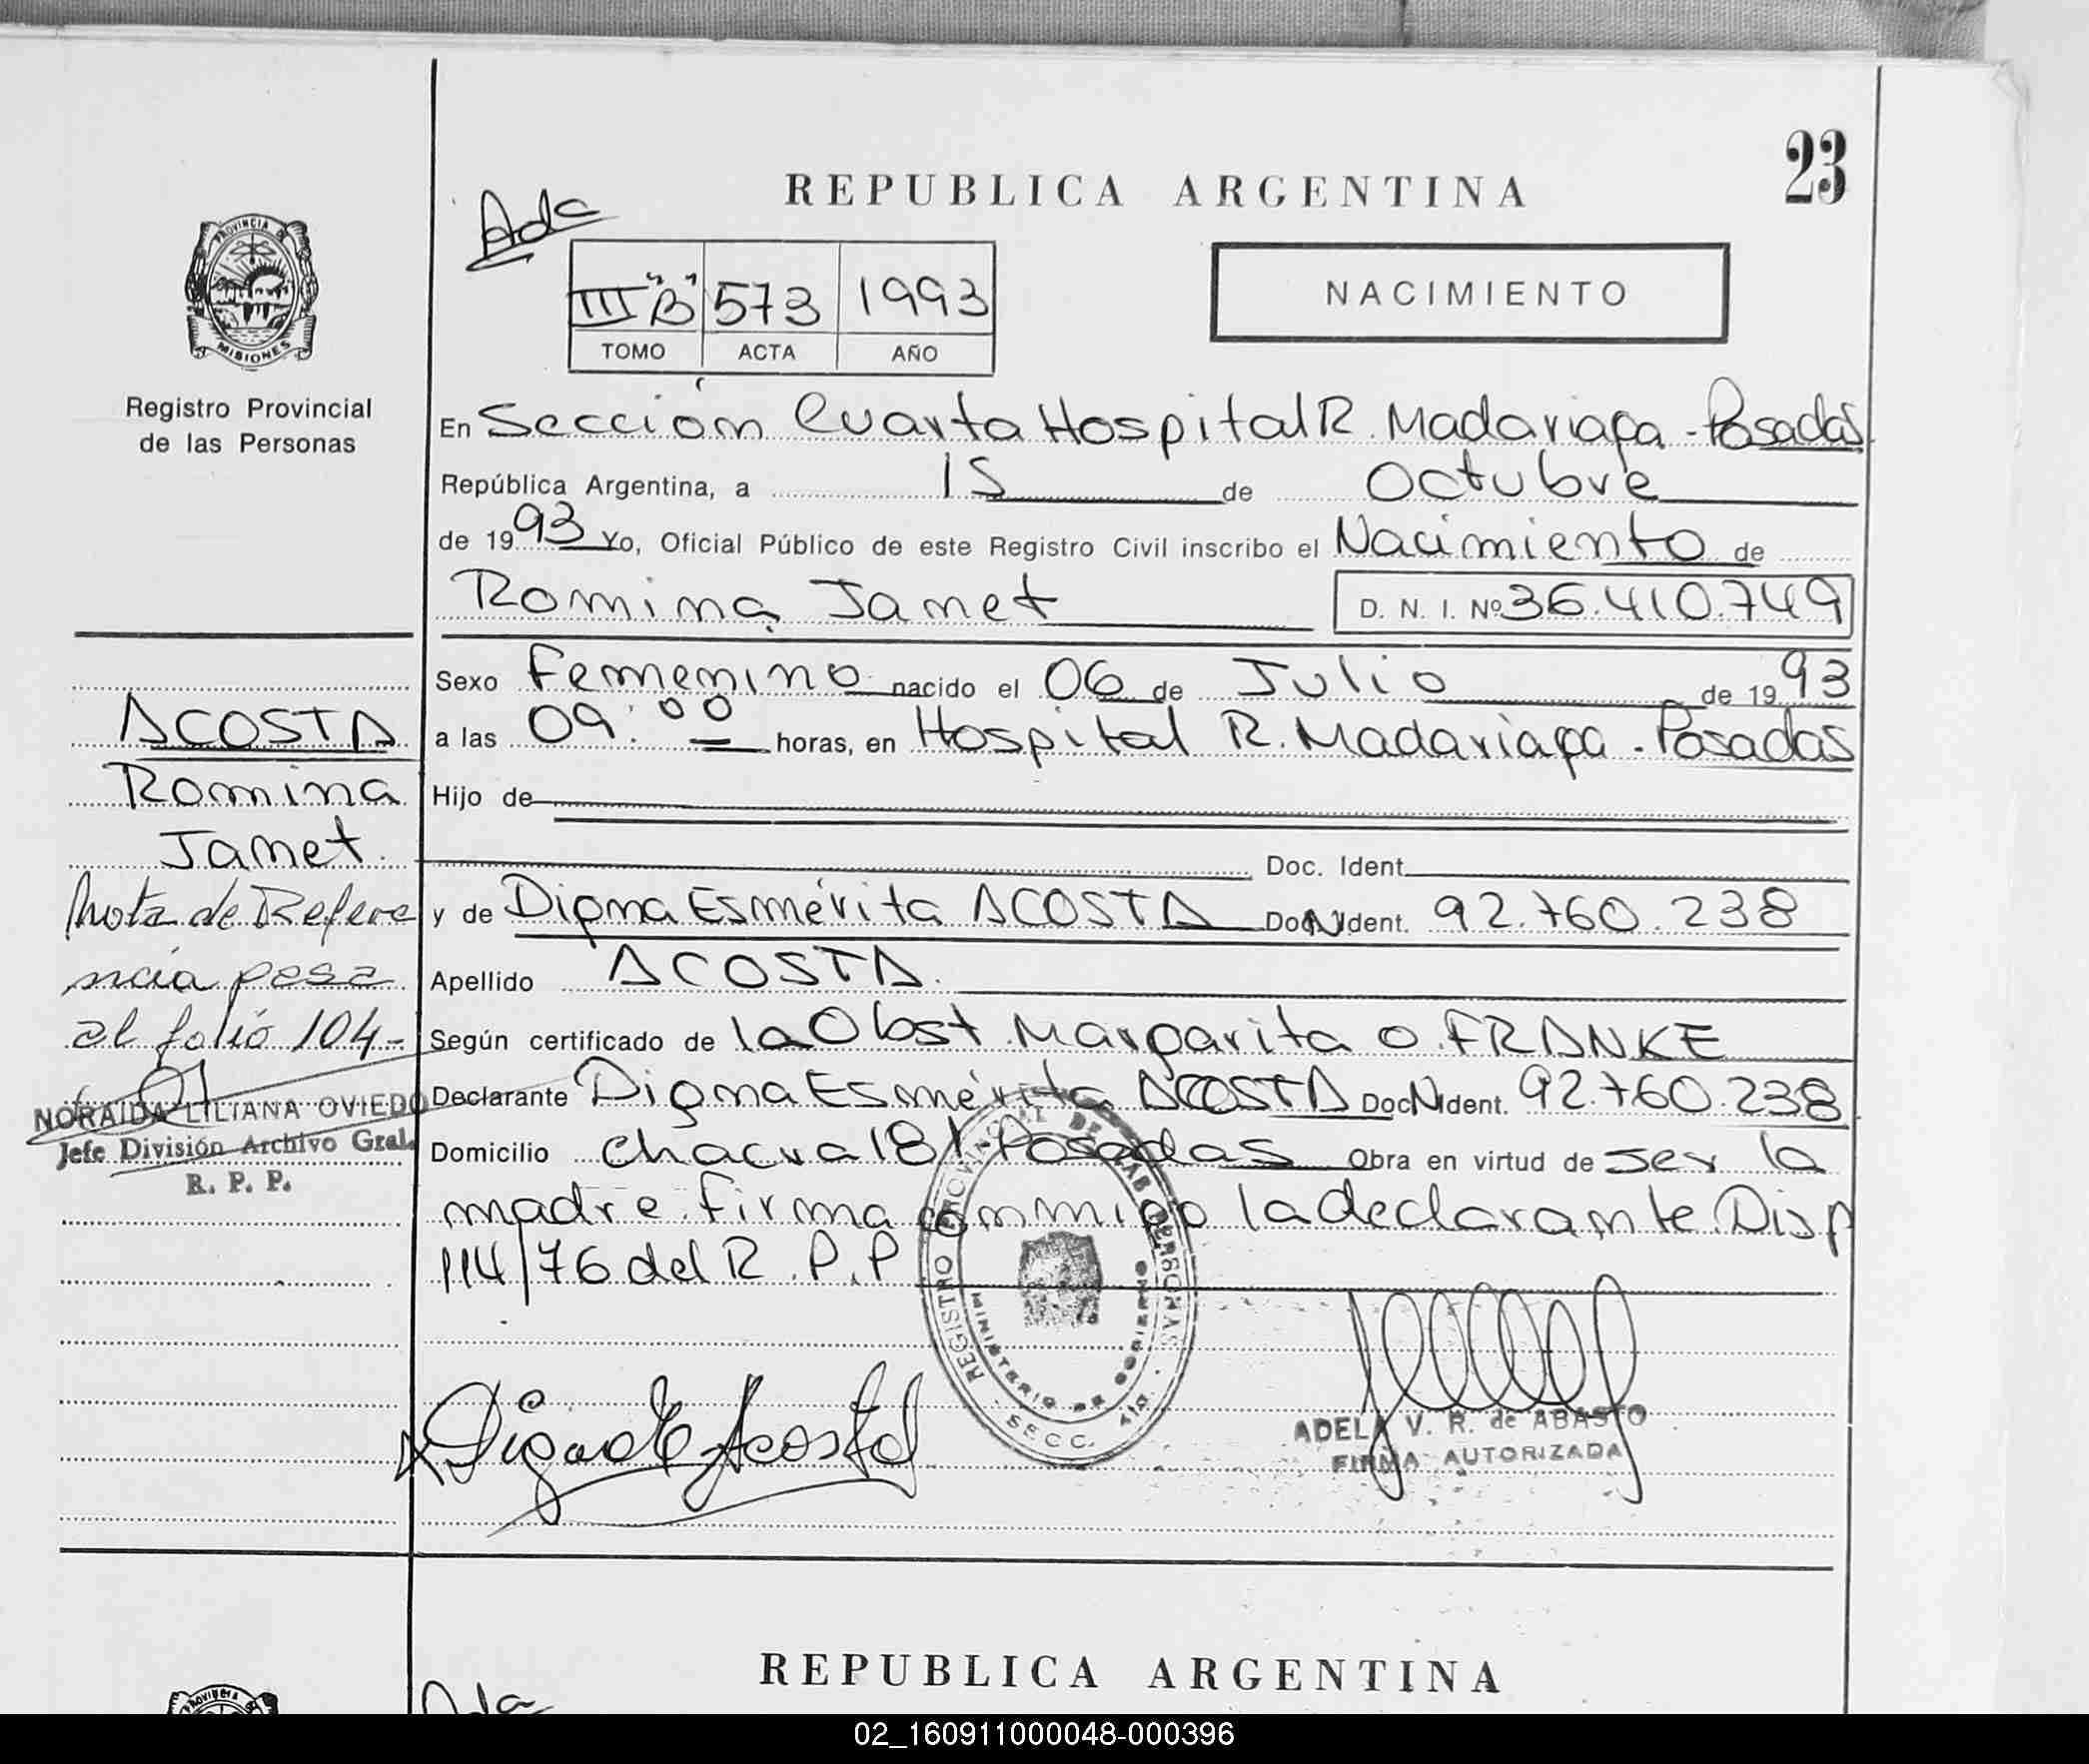 23
REPUBLICA ARGENTINA
Ada
PROVINCIA DE
MISIONES
III "B" 573 1993
TOMO ACTA AÑO
NACIMIENTO
Registro Provincial
de las Personas
En Sección Cuarta Hospital R. Madariaga - Posadas
República Argentina, a 15 de Octubre
de 1993 Yo, Oficial Público de este Registro Civil inscribo el Nacimiento de
Romina Janet D. N. I. Nº 36.410.749
Sexo Femenino nacido el 06 de Julio de 1993
a las 09:00 horas, en Hospital R. Madariaga - Posadas
Hijo de
Doc. Ident.
y de Digma Esmérita ACOSTA Doc. Ident. 92.760.238
Apellido ACOSTA.
Según certificado de la Obst Margarita O. FRANKE
Declarante Digma Esmérita ACOSTA Doc. Ident. 92.760.238
Domicilio Chacra 181 Posadas Obra en virtud de ser la
madre. firma conmigo la declarante. Disp
114/76 del R. P. P
ACOSTA
Romina
Janet.
Nota de Refere
ncia pasa
al folio 104-
NORAIDA LILIANA OVIEDO
Jefe División Archivo Gral.
R. P. P.
REGISTRO PROVINCIAL DE LAS PERSONAS
MINISTERIO DE GOBIERNO
SECC. 4ta.
Digma E Acosta
ADELA V. R. de ABASTO
FIRMA AUTORIZADA
REPUBLICA ARGENTINA
Ada
02_160911000048-000396